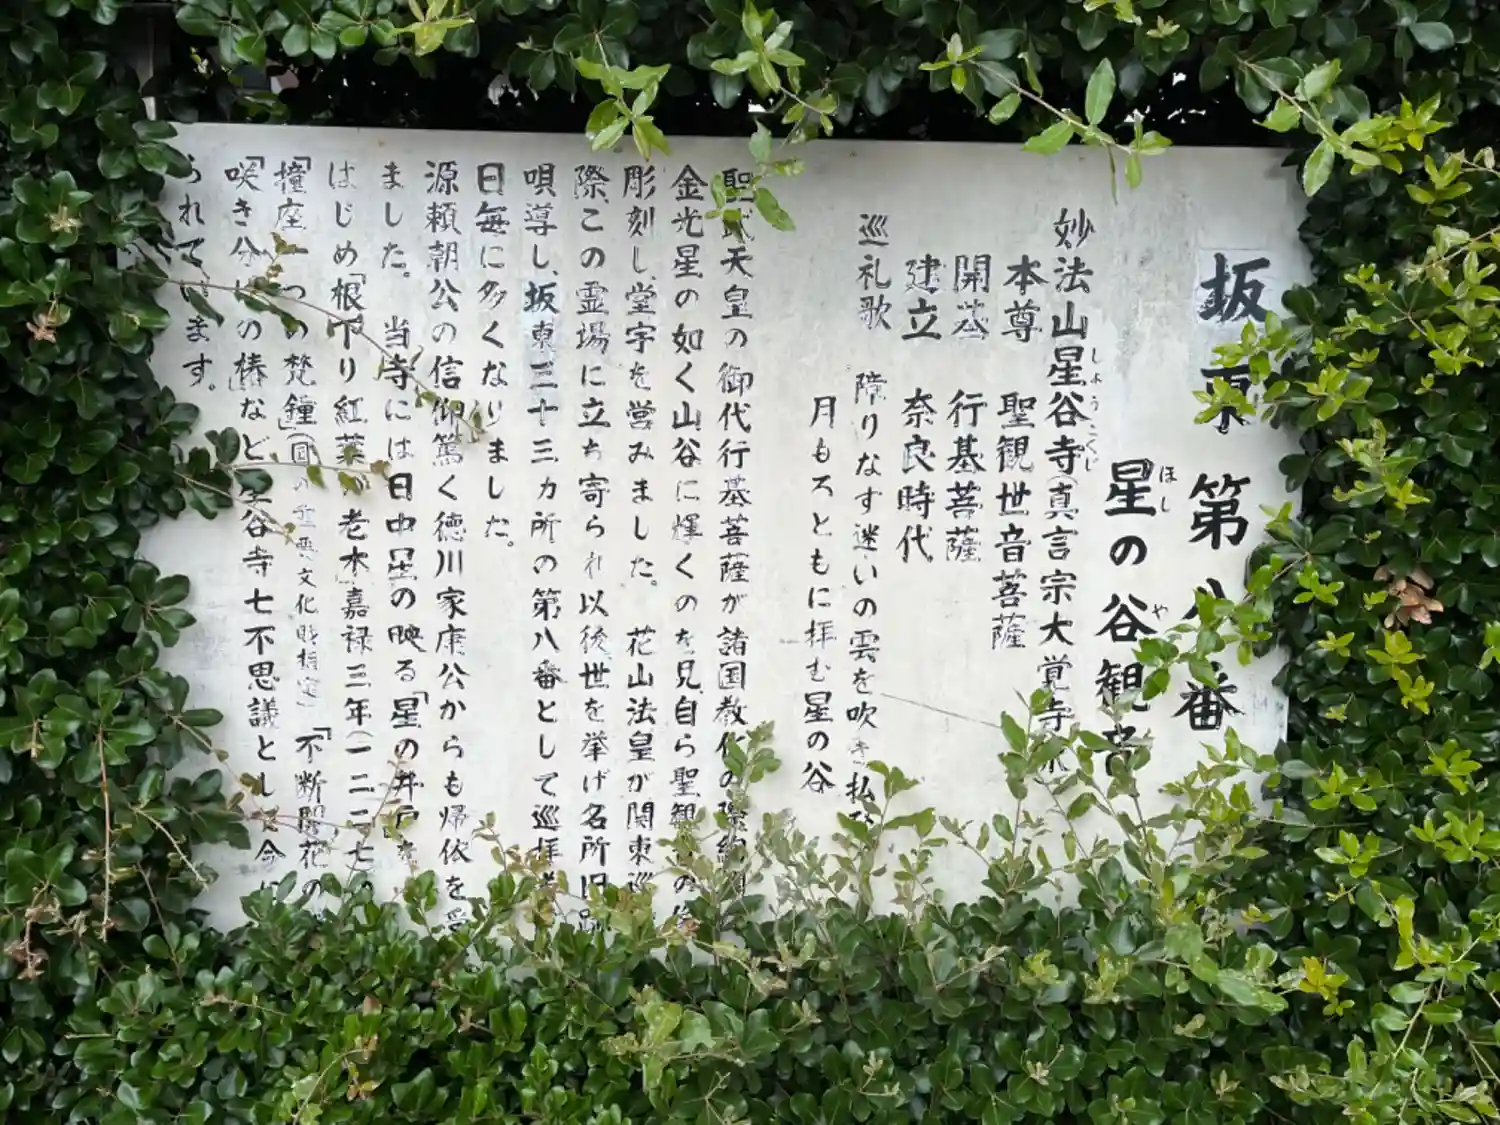 坂東第八番
星の谷観音
ほし や
妙法山星谷寺(真言宗大覚寺
しようこくじ
本尊 聖観世音菩薩
開基 行基菩薩
建立 奈良時代
巡礼歌 障りなす迷いの雲を吹き
月もろともに拝む星の谷
聖武天皇の御代行基菩薩が諸国教化の際
金光星の如く山谷に輝くのを見、自ら聖観音の像
彫刻し、堂宇を営みました。 花山法皇が関東巡
際、この霊場に立ち寄られ以後、世を挙げ名所旧跡
唄導し、坂東三十三カ所の第八番として巡拝
日毎に多くなりました。
源頼朝公の信仰篤く徳川家康公からも帰依を受
ました。 当寺には日中星の映る「星の井戸」を
はじめ「根下り紅葉が老木」嘉禄三年(一二二七
「撞座一つの梵鐘」(国の重要文化財指定)「不断開花の
「咲き分けの椿」など星谷寺七不思議として今に
られています。